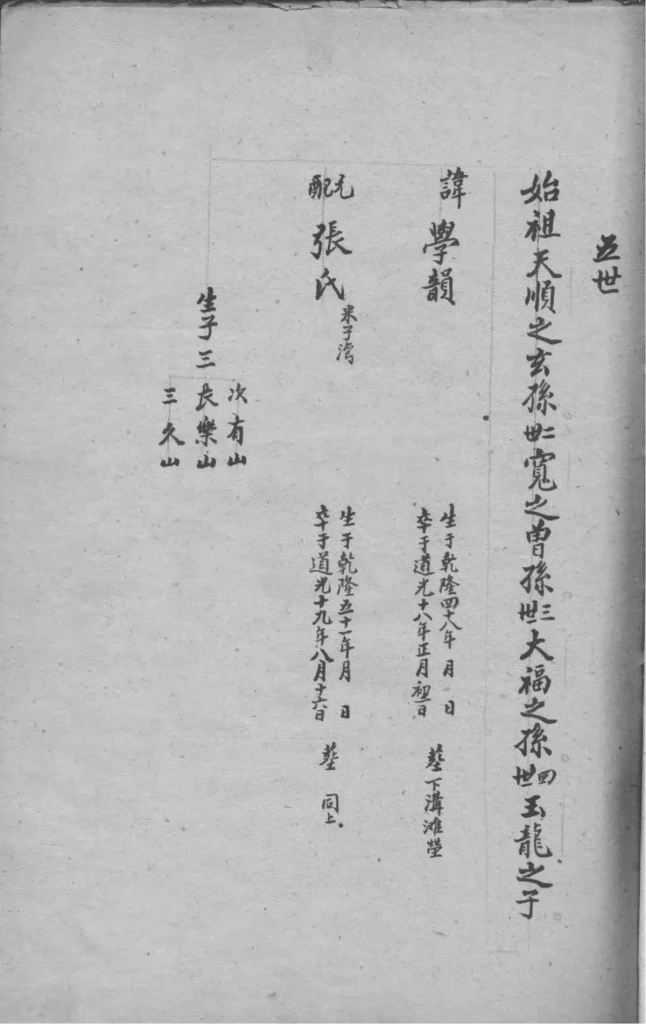 五世
始祖天順之玄孫二世寬之曾孫三世大福之孫四世玉龍之子
諱學韻
生于乾隆四十八年 月 日
卒于道光十八年正月初一日
塟下溝滩塋
元配張氏
米子灣
生于乾隆五十一年 月 日
卒于道光十九年八月十六日
塟同上。
生子三
次有山
長樂山
三久山